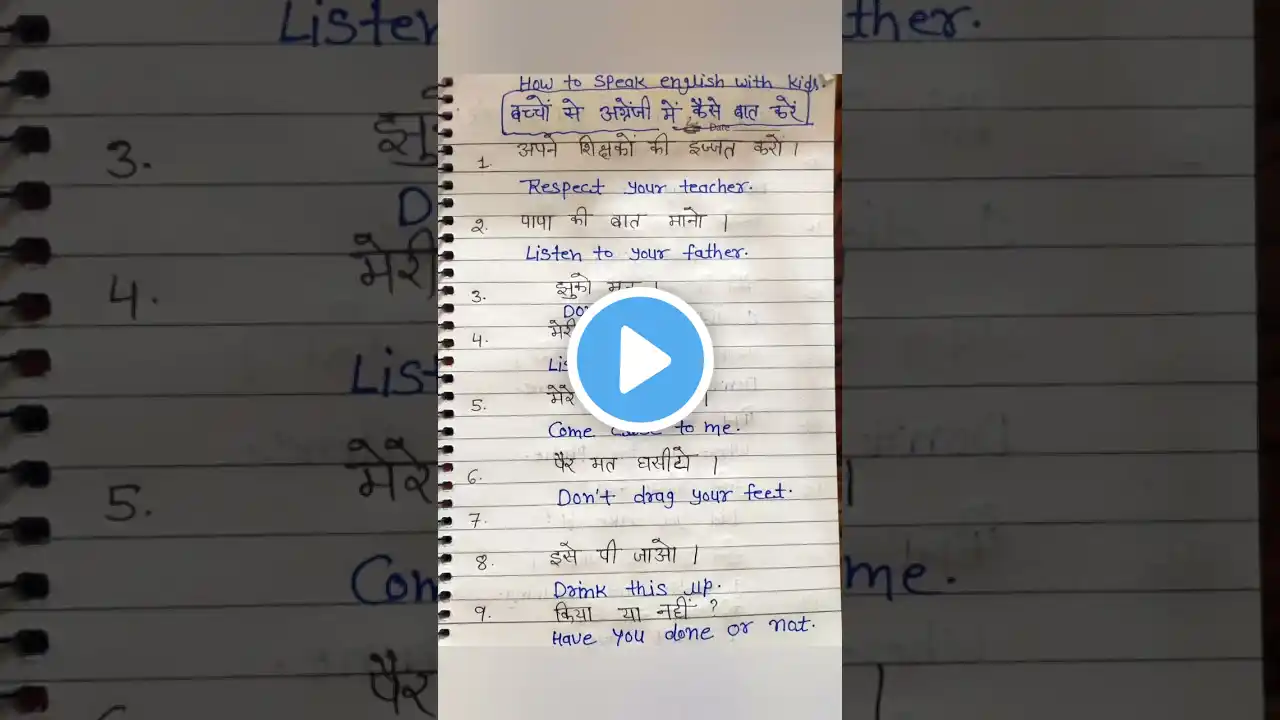 How to speak english with kids.
बच्चों से अंग्रेजी में कैसे बात करें
Date
1. अपने शिक्षकों की इज्जत करो।
Respect your teacher.
2. पापा की बात मानो।
Listen to your father.
3. झुको मत।
4. मेरी
5. मेरे
Come to me.
6. पैर मत घसीटो।
Don't drag your feet.
7.
8. इसे पी जाओ।
Drink this up.
9. किया या नहीं?
Have you done or not.
Listen ther.
3.
4. मेरी
List
5. मेरे
Com me.
पैर